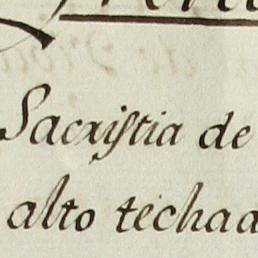 Sacristia de
alto techad